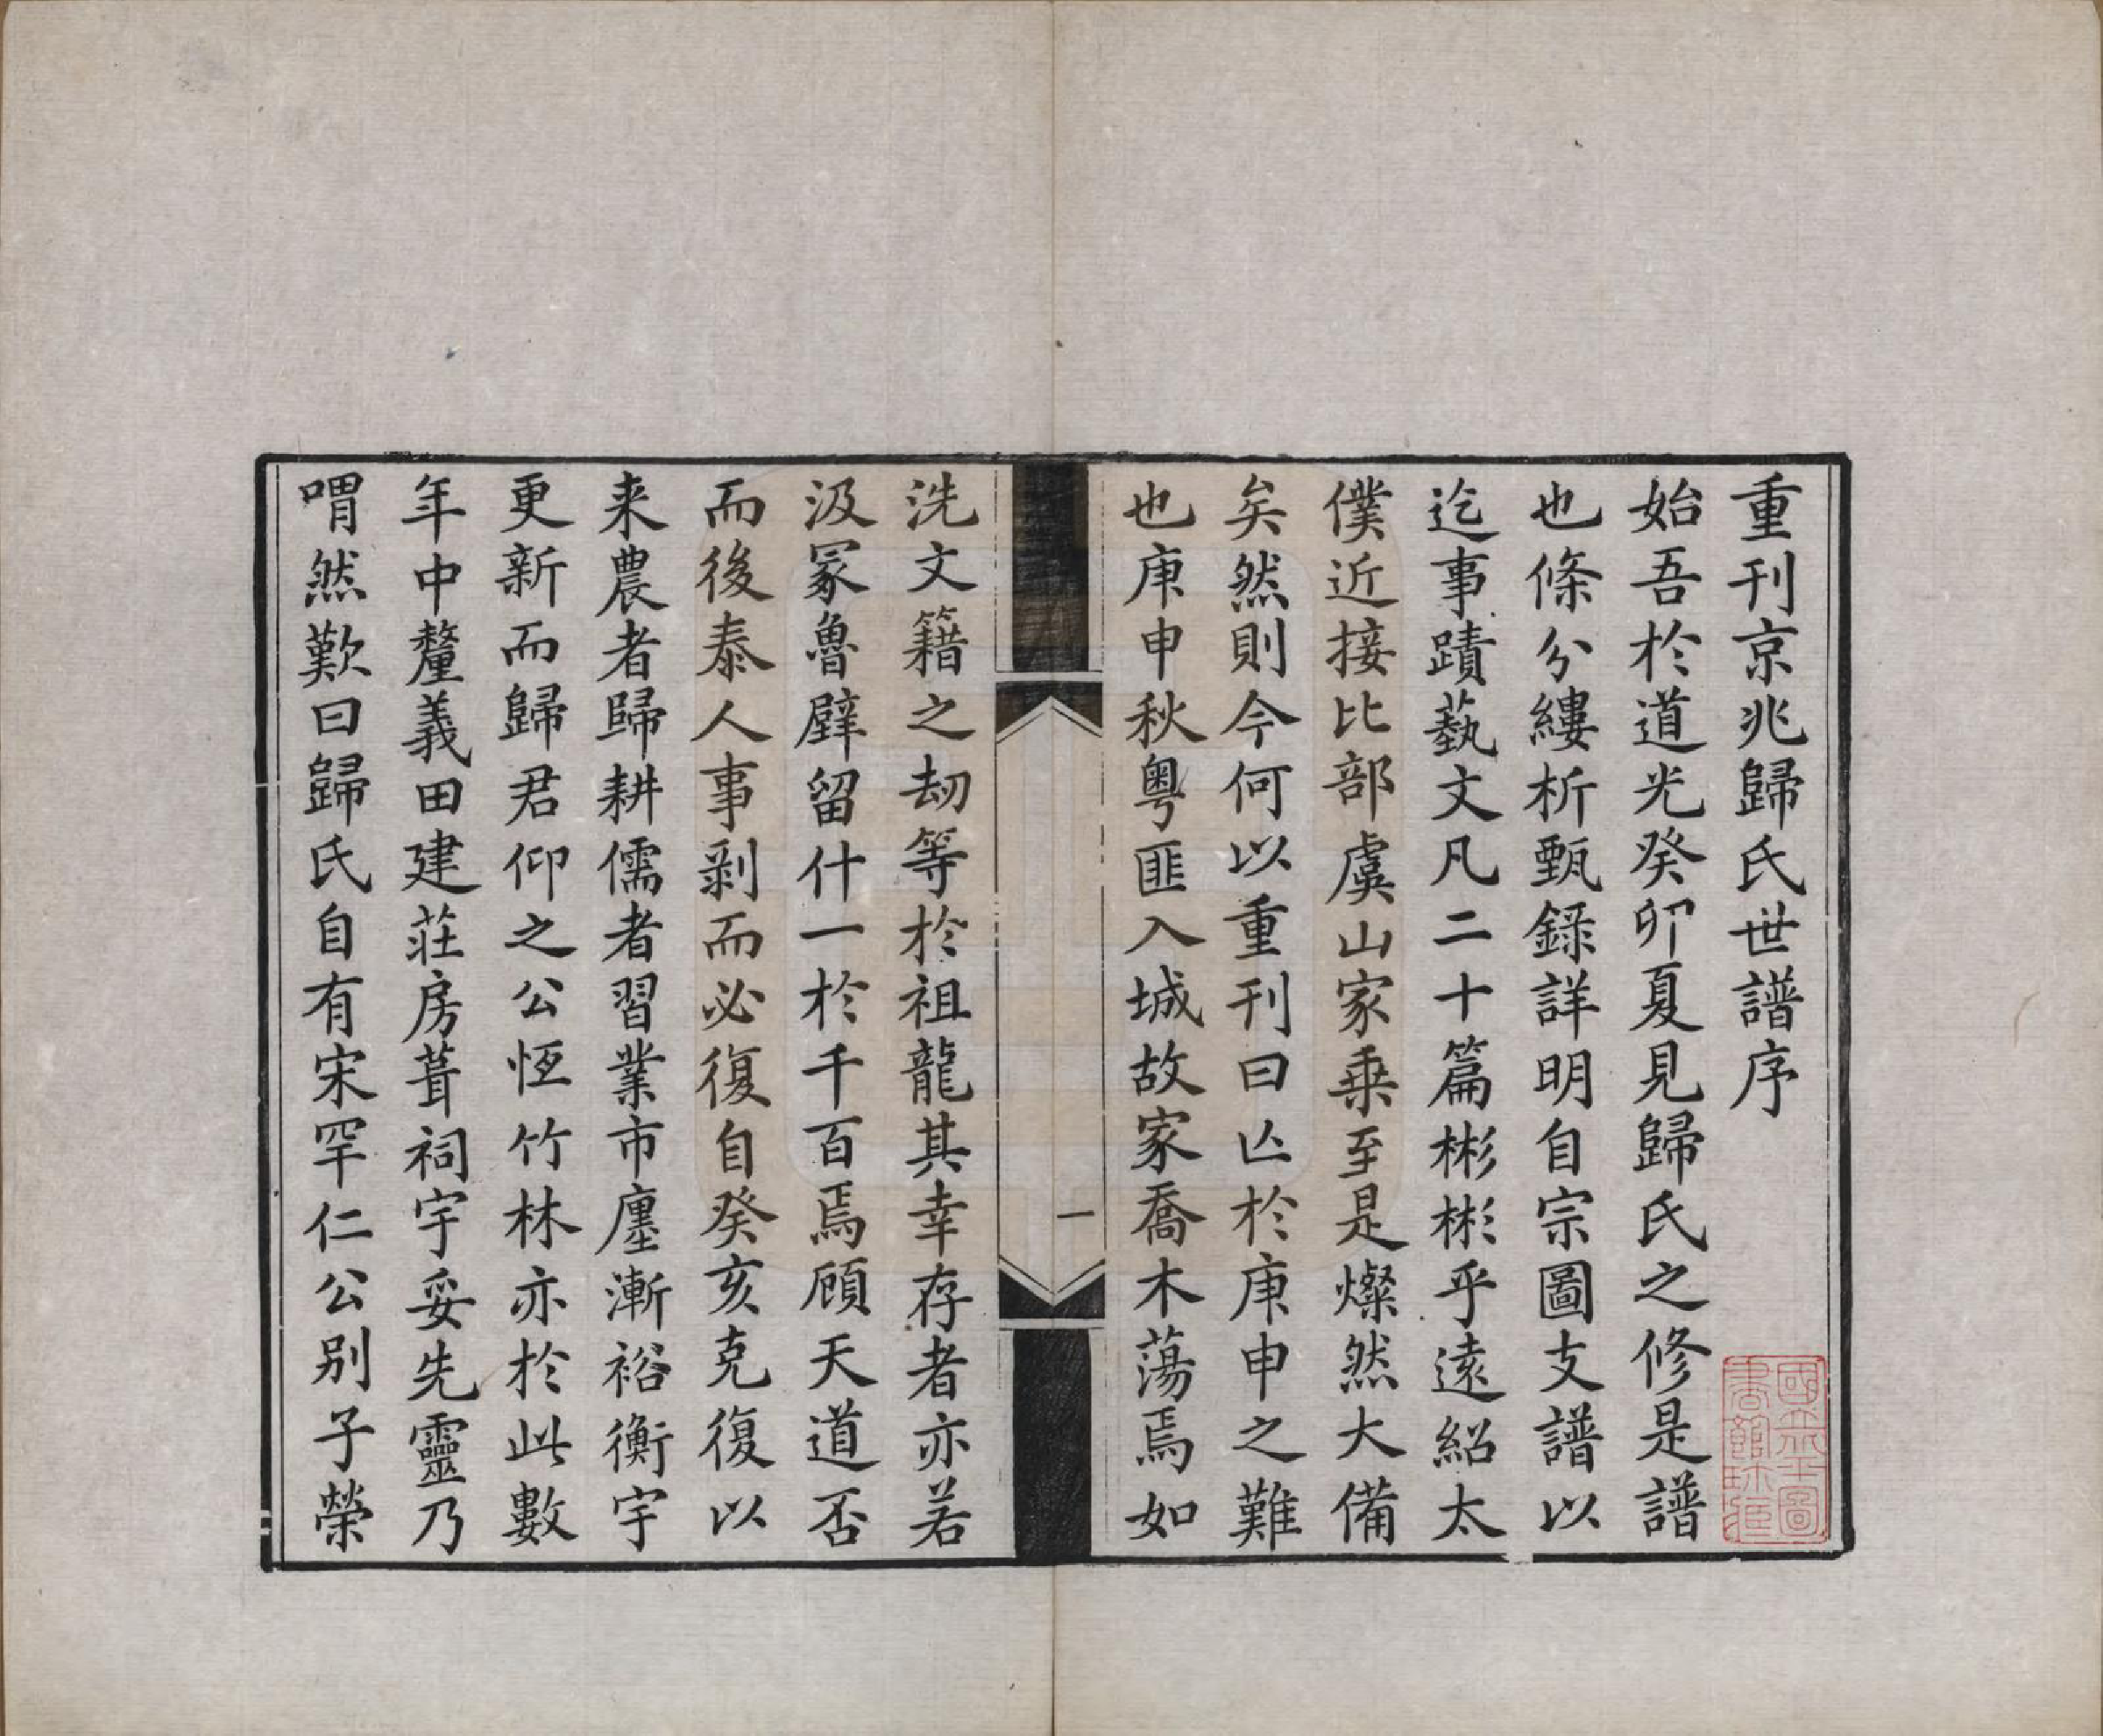 重刊京兆歸氏世譜序
始吾於道光癸卯夏見歸氏之修是譜
也條分縷析甄録詳明自宗圖支譜以
迄事蹟藝文凡二十篇彬彬乎遠紹太
僕近接比部虞山家乗至是燦然大備
矣然則今何以重刊曰亾於庚申之難
也庚申秋粤匪入城故家喬木蕩焉如
一
洗文籍之劫等於祖龍其幸存者亦若
汲冢魯壁留什一於千百焉顧天道否
而後泰人事剥而必復自癸亥克復以
来農者歸耕儒者習業市廛漸裕衡宇
更新而歸君仰之公恆竹林亦於此數
年中釐義田建莊房葺祠宇妥先靈乃
喟然歎曰歸氏自有宋罕仁公別子榮
國立北平圖
書館珎藏